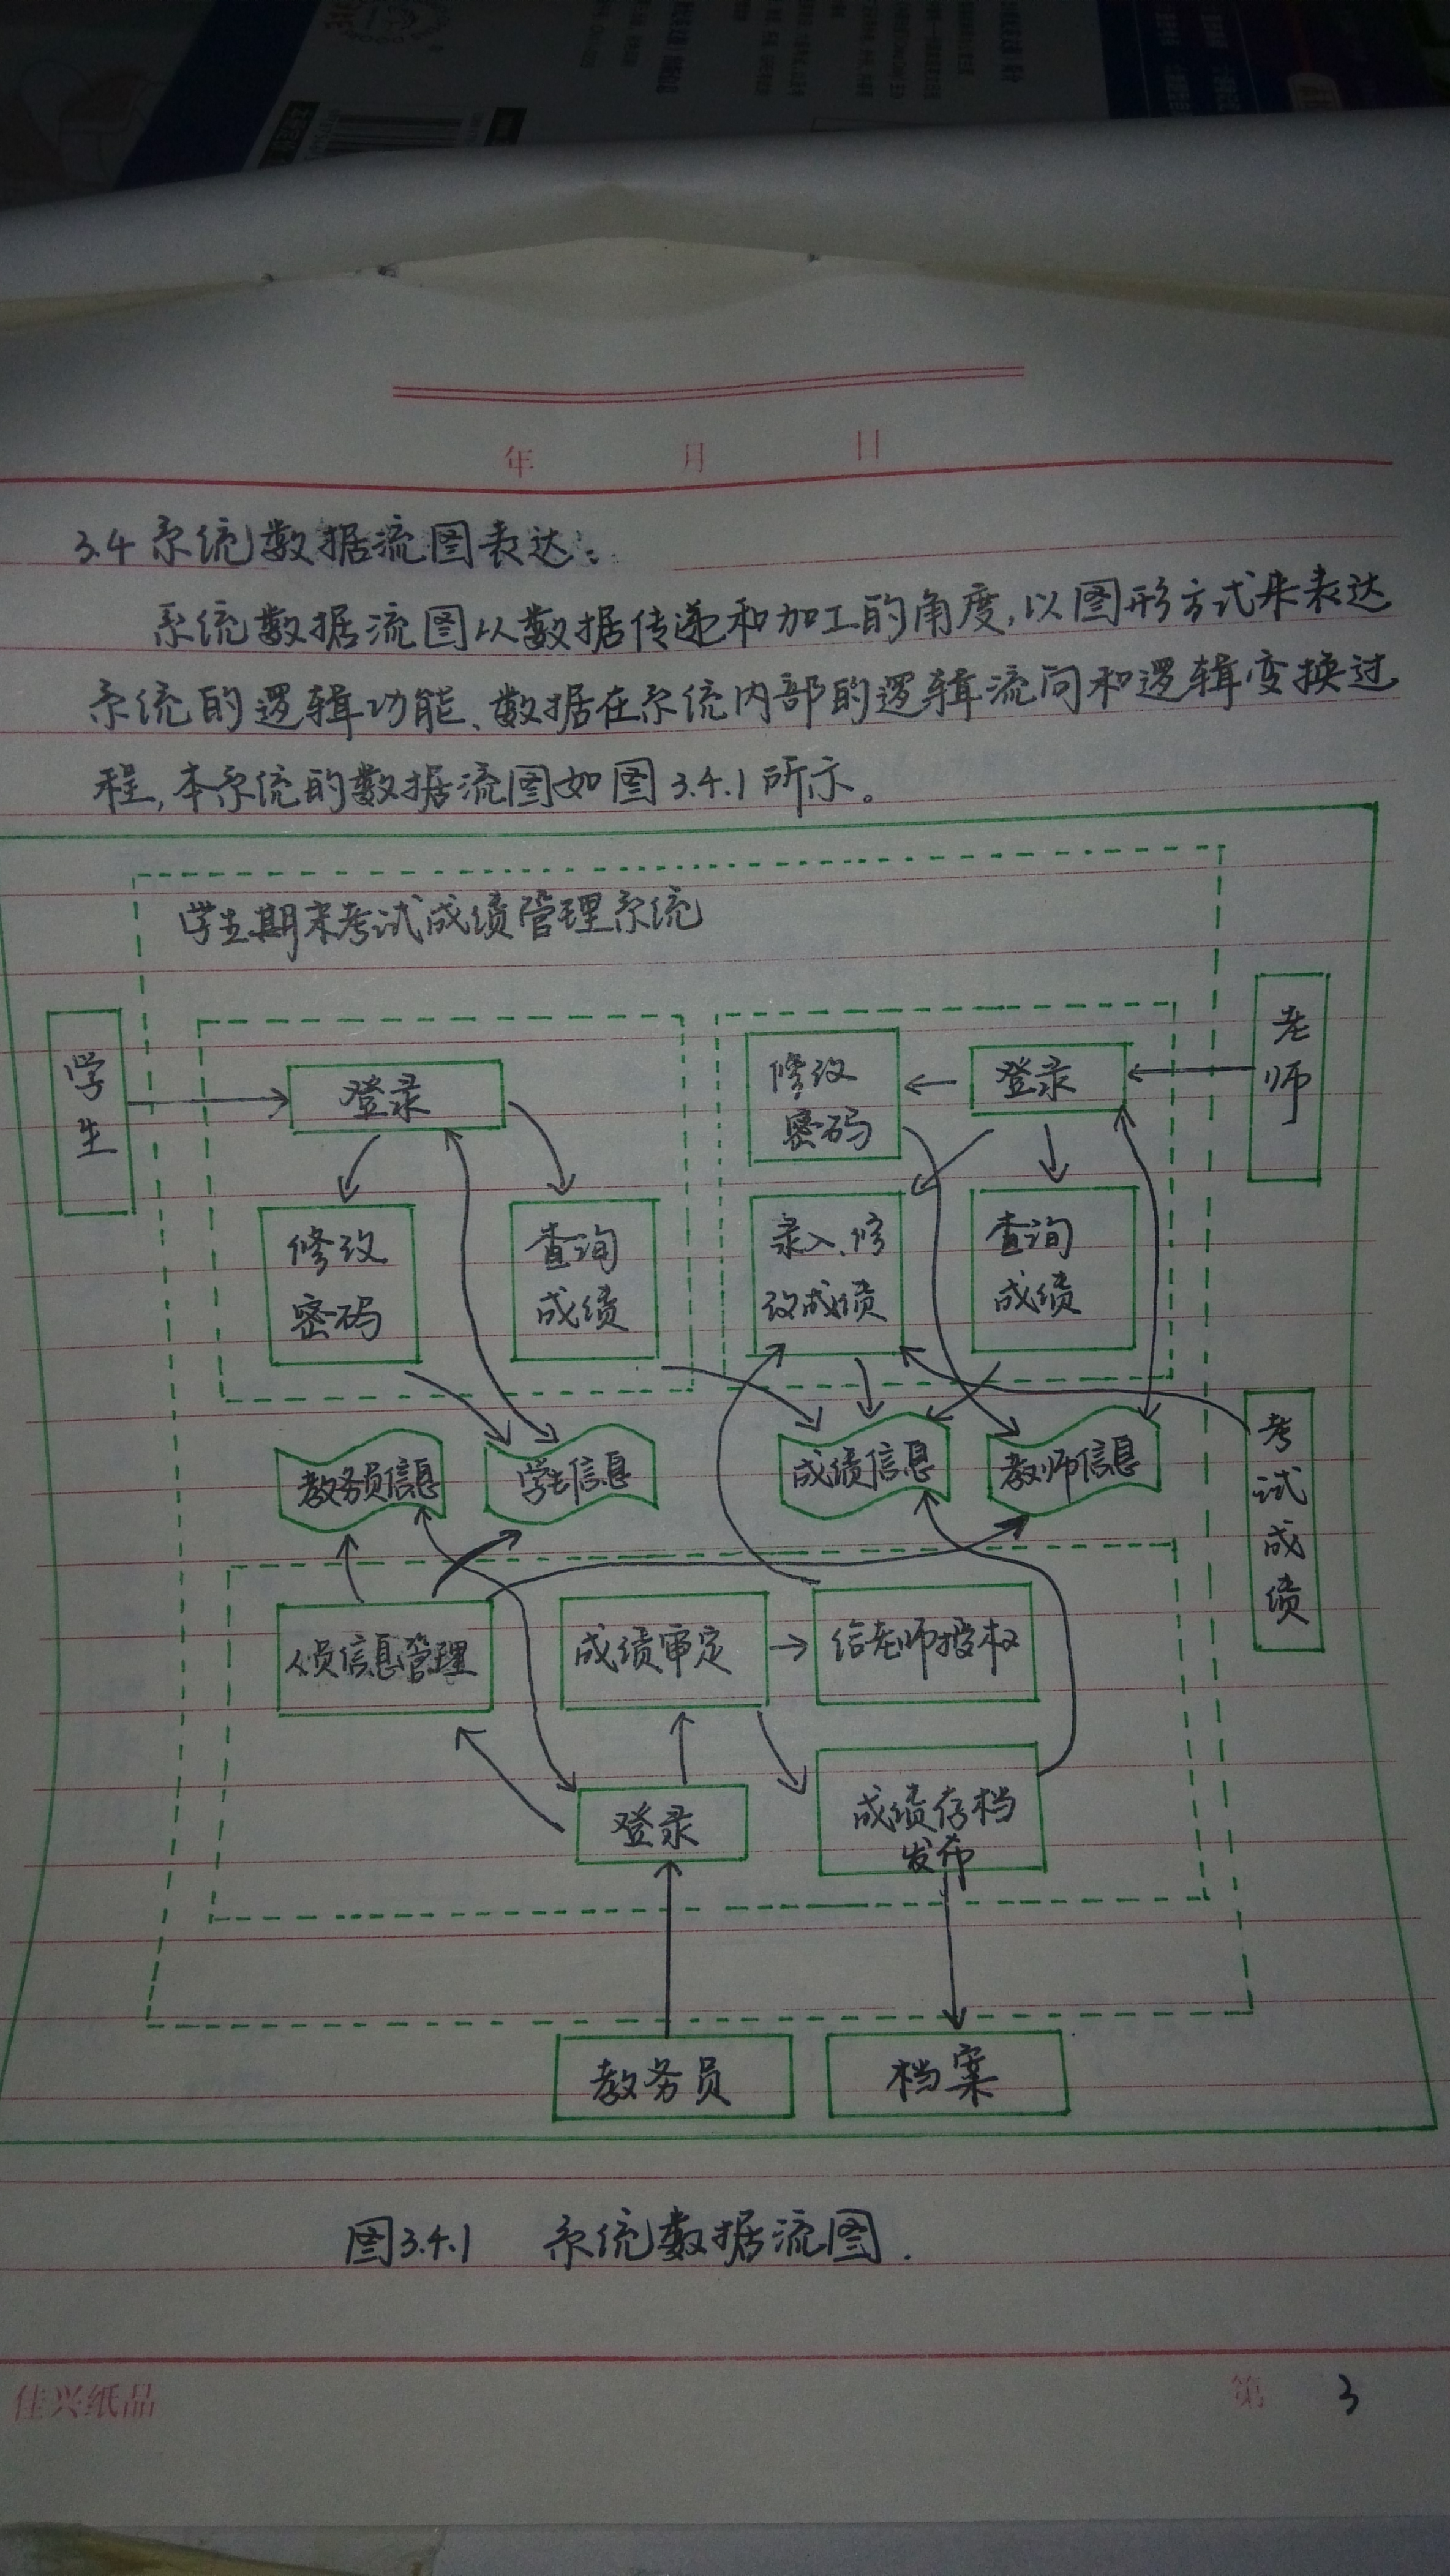 年 月 日
3.4 系统数据流图表达:
系统数据流图以数据传递和加工的角度,以图形方式来表达
系统的逻辑功能、数据在系统内部的逻辑流向和逻辑变换过
程,本系统的数据流图如图3.4.1所示。
学生期末考试成绩管理系统
学
生
登录
修改
密码
查询
成绩
修改
密码
登录
录入、修
改成绩
查询
成绩
老
师
教务员信息
学生信息
成绩信息
教师信息
考
试
成
绩
人员信息管理
成绩审定
给老师授权
登录
成绩存档
发布
教务员
档案
图3.4.1 系统数据流图.
佳兴纸品
第 3